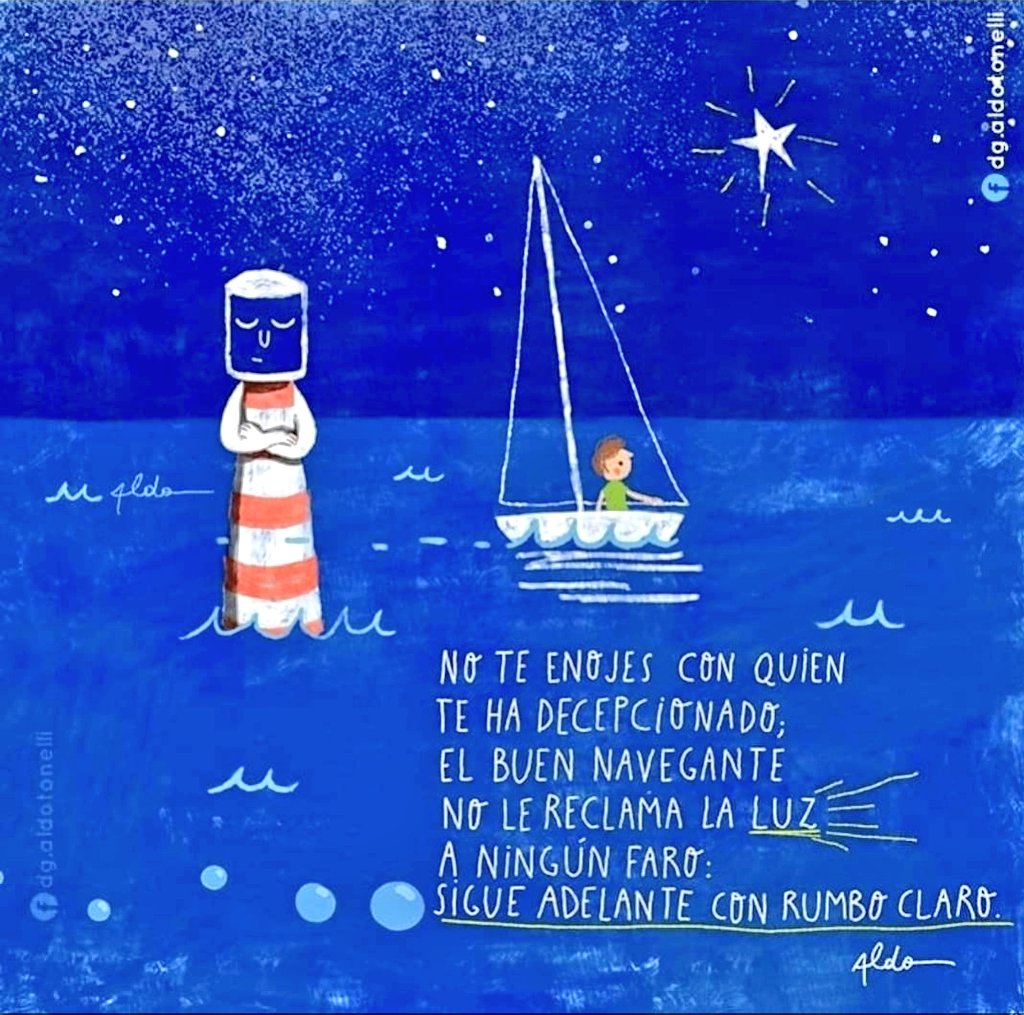 dg.aldotonelli
Aldo
NO TE ENOJES CON QUIEN
TE HA DECEPCIONADO;
EL BUEN NAVEGANTE
NO LE RECLAMA LA LUZ
A NINGÚN FARO:
SIGUE ADELANTE CON RUMBO CLARO.
Aldo
dg.aldotonelli